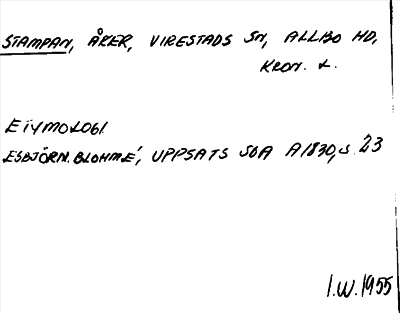 STAMPAN, ÅKER, VIRESTADS SN, ALLBO HD,
KRON. L.
ETYMOLOGI
ESBJÖRN BLOHMÉ, UPPSATS SOA A1830, S. 23
I.W. 1955